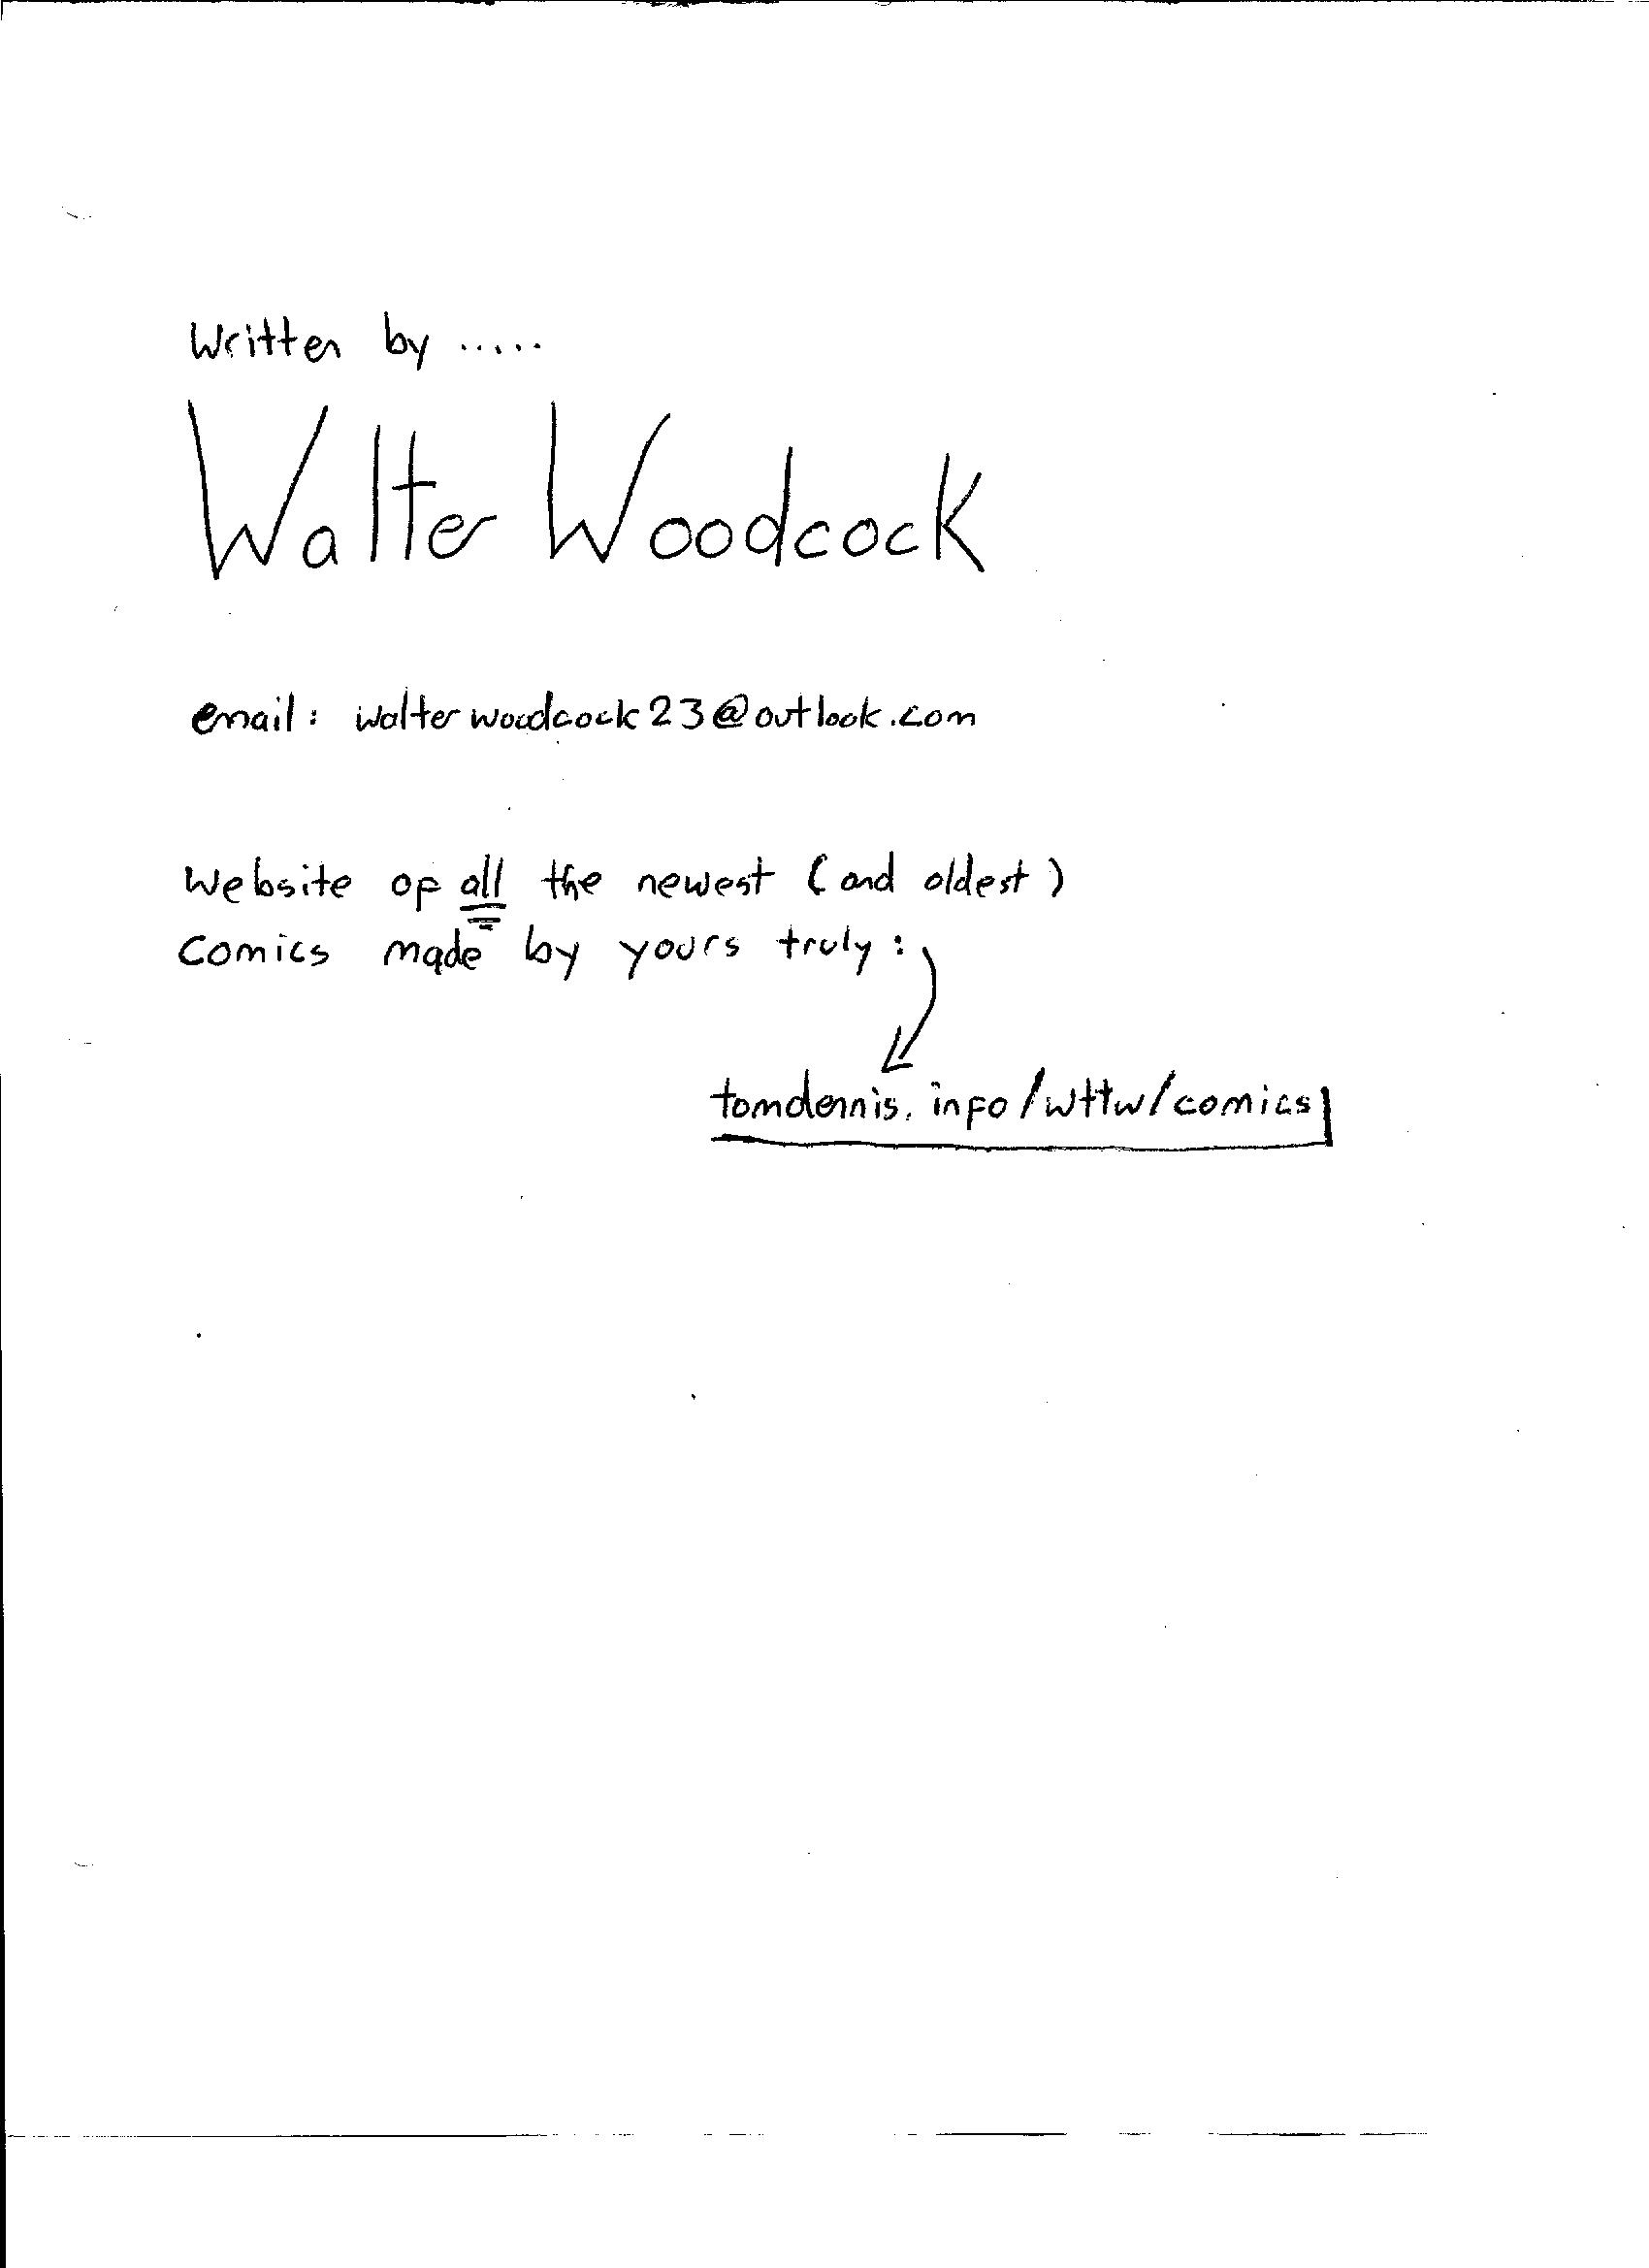 Written by .....
Walter Woodcock
email: walterwoodcock23@outlook.com
Website of all the newest (and oldest)
comics made by yours truly:
tomdennis.info/wttw/comics